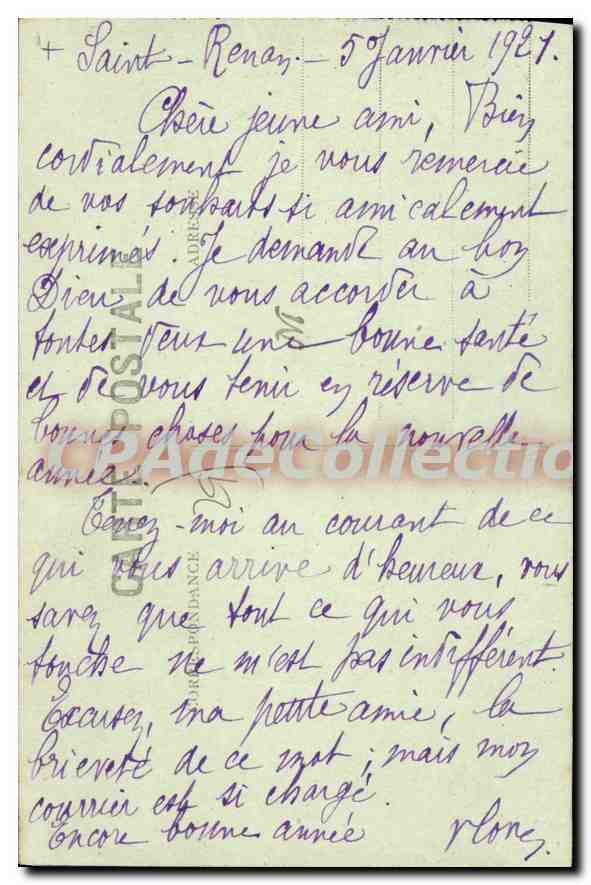 + Saint-Renan. - 5 Janvier 1921.
Chère jeune ami, Bien
cordialement je vous remercie
de vos souhaits si amicalement
exprimés. Je demande au bon
Dieu de vous accorder à
toutes deux une bonne santé
et de vous tenir en réserve de
bonnes choses pour la nouvelle
année.
Tenez-moi au courant de ce
qui vous arrive d'heureux, vous
savez que tout ce qui vous
touche ne m'est pas indifférent.
Excusez, ma petite amie, la
brieveté de ce mot; mais mon
courrier est si chargé.
Encore bonne année
CARTE POSTALE
ADRESSE
CORRESPONDANCE
M
CPAdeCollection